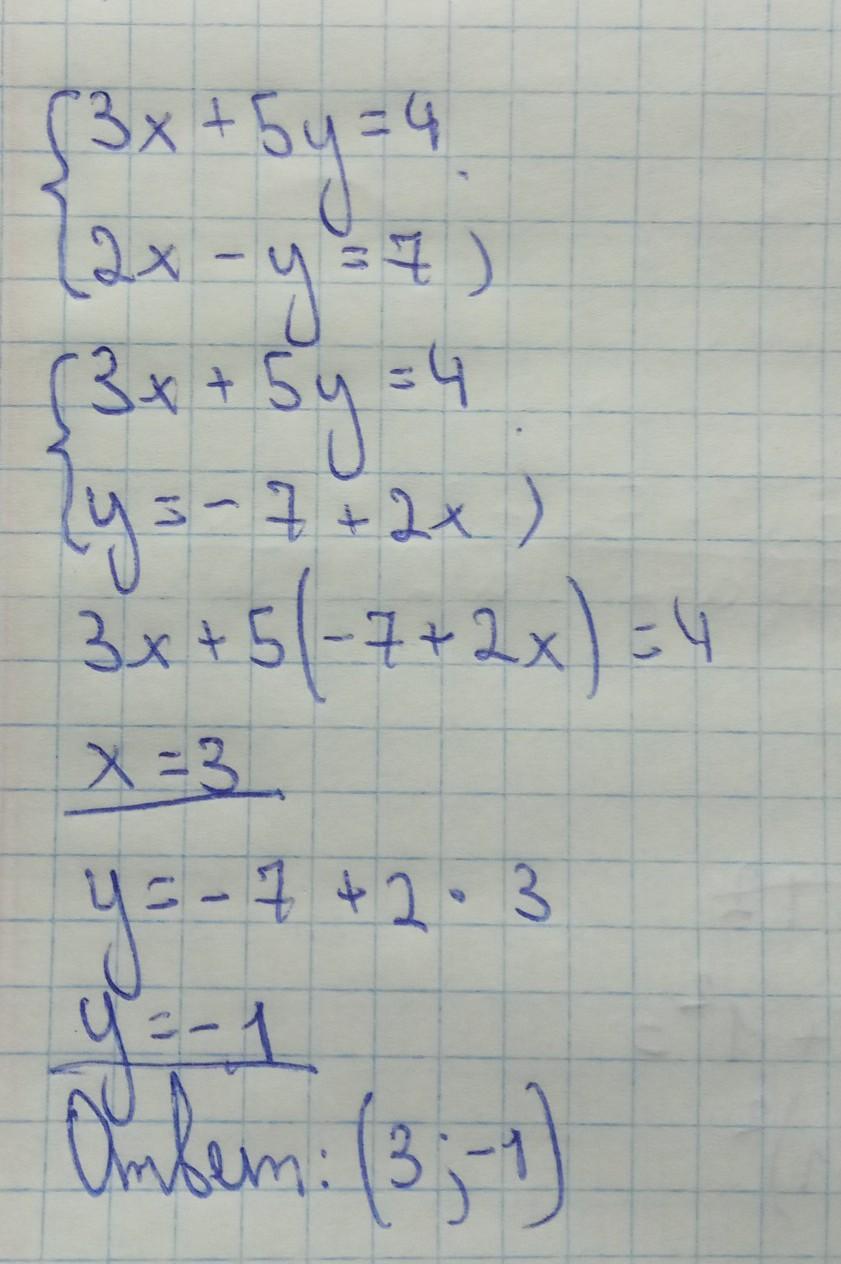 {3x + 5y = 4
{2x - y = 7 ;
{3x + 5y = 4
{y = - 7 + 2x ;
3x + 5(-7 + 2x) = 4
x = 3
y = - 7 + 2 · 3
y = - 1
Ответ: (3; -1)